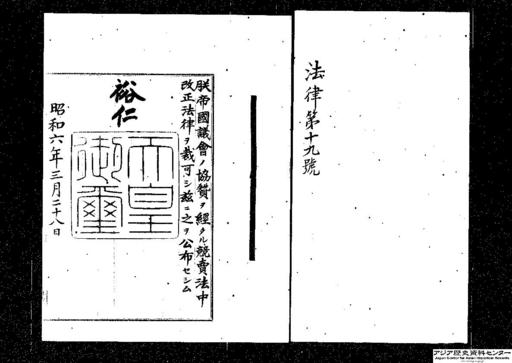 法律第十九號
朕帝國議會ノ協贊ヲ經タル競賣法中
改正法律ヲ裁可シ茲ニ之ヲ公布セシム
裕仁
天皇
御璽
昭和六年三月二十八日
アジア歴史資料センター
Japan Center for Asian Historical Records